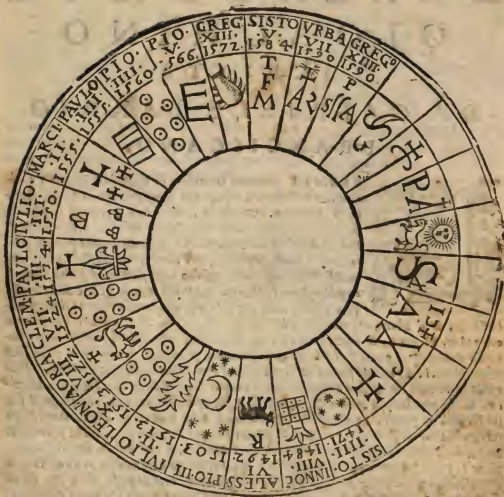 SISTO
.IIII.
1471
INNOC
VIII
1484
ALESS
VI
1492
PIO III
1503.
IVLIO
.II.
1513.
LEON
X
1513
AORIA
VIII.
1522
CLEM
VII
1524
PAVLO
.III.
1574
IVLIO.
III.
1550.
MARCI.
.II.
1555.
PAVLO
.IIII.
1555.
PIO.
IIII.
1560.
PIO.
V.
1566.
GREG
XIII.
1572.
SISTO
.V.
1584.
VRBA
VII
1590
GREGº
XIIII.
1590.
T
F
M
AR
P
SSA
PA
R